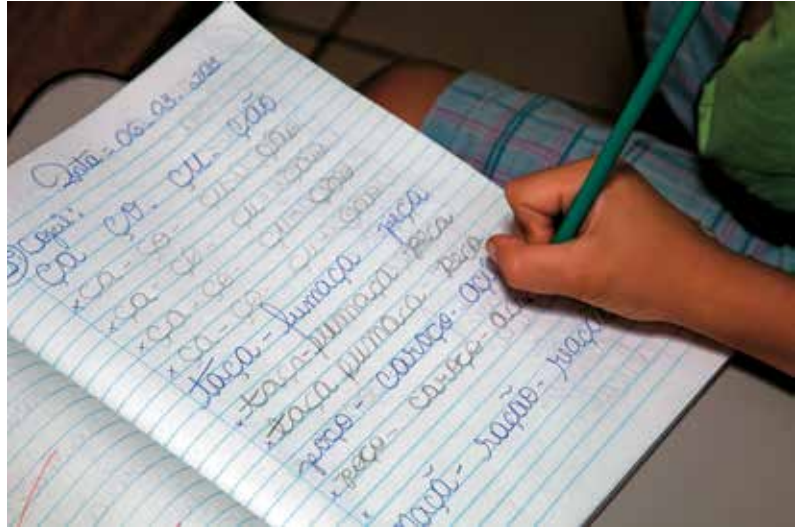 Data = 06-03-
Copie:
ça ço - çu - ção
x ça - ço - çu - ção
x ça - ço - çu - ção
x ça - ço - çu - ção
x ça - ço - çu - ção
taça - fumaça peça
x taça - fumaça - peça
x taça fumaça - peça
poço - caroço - aço
x poço - caroço - aço
x
maçã - ração - reação